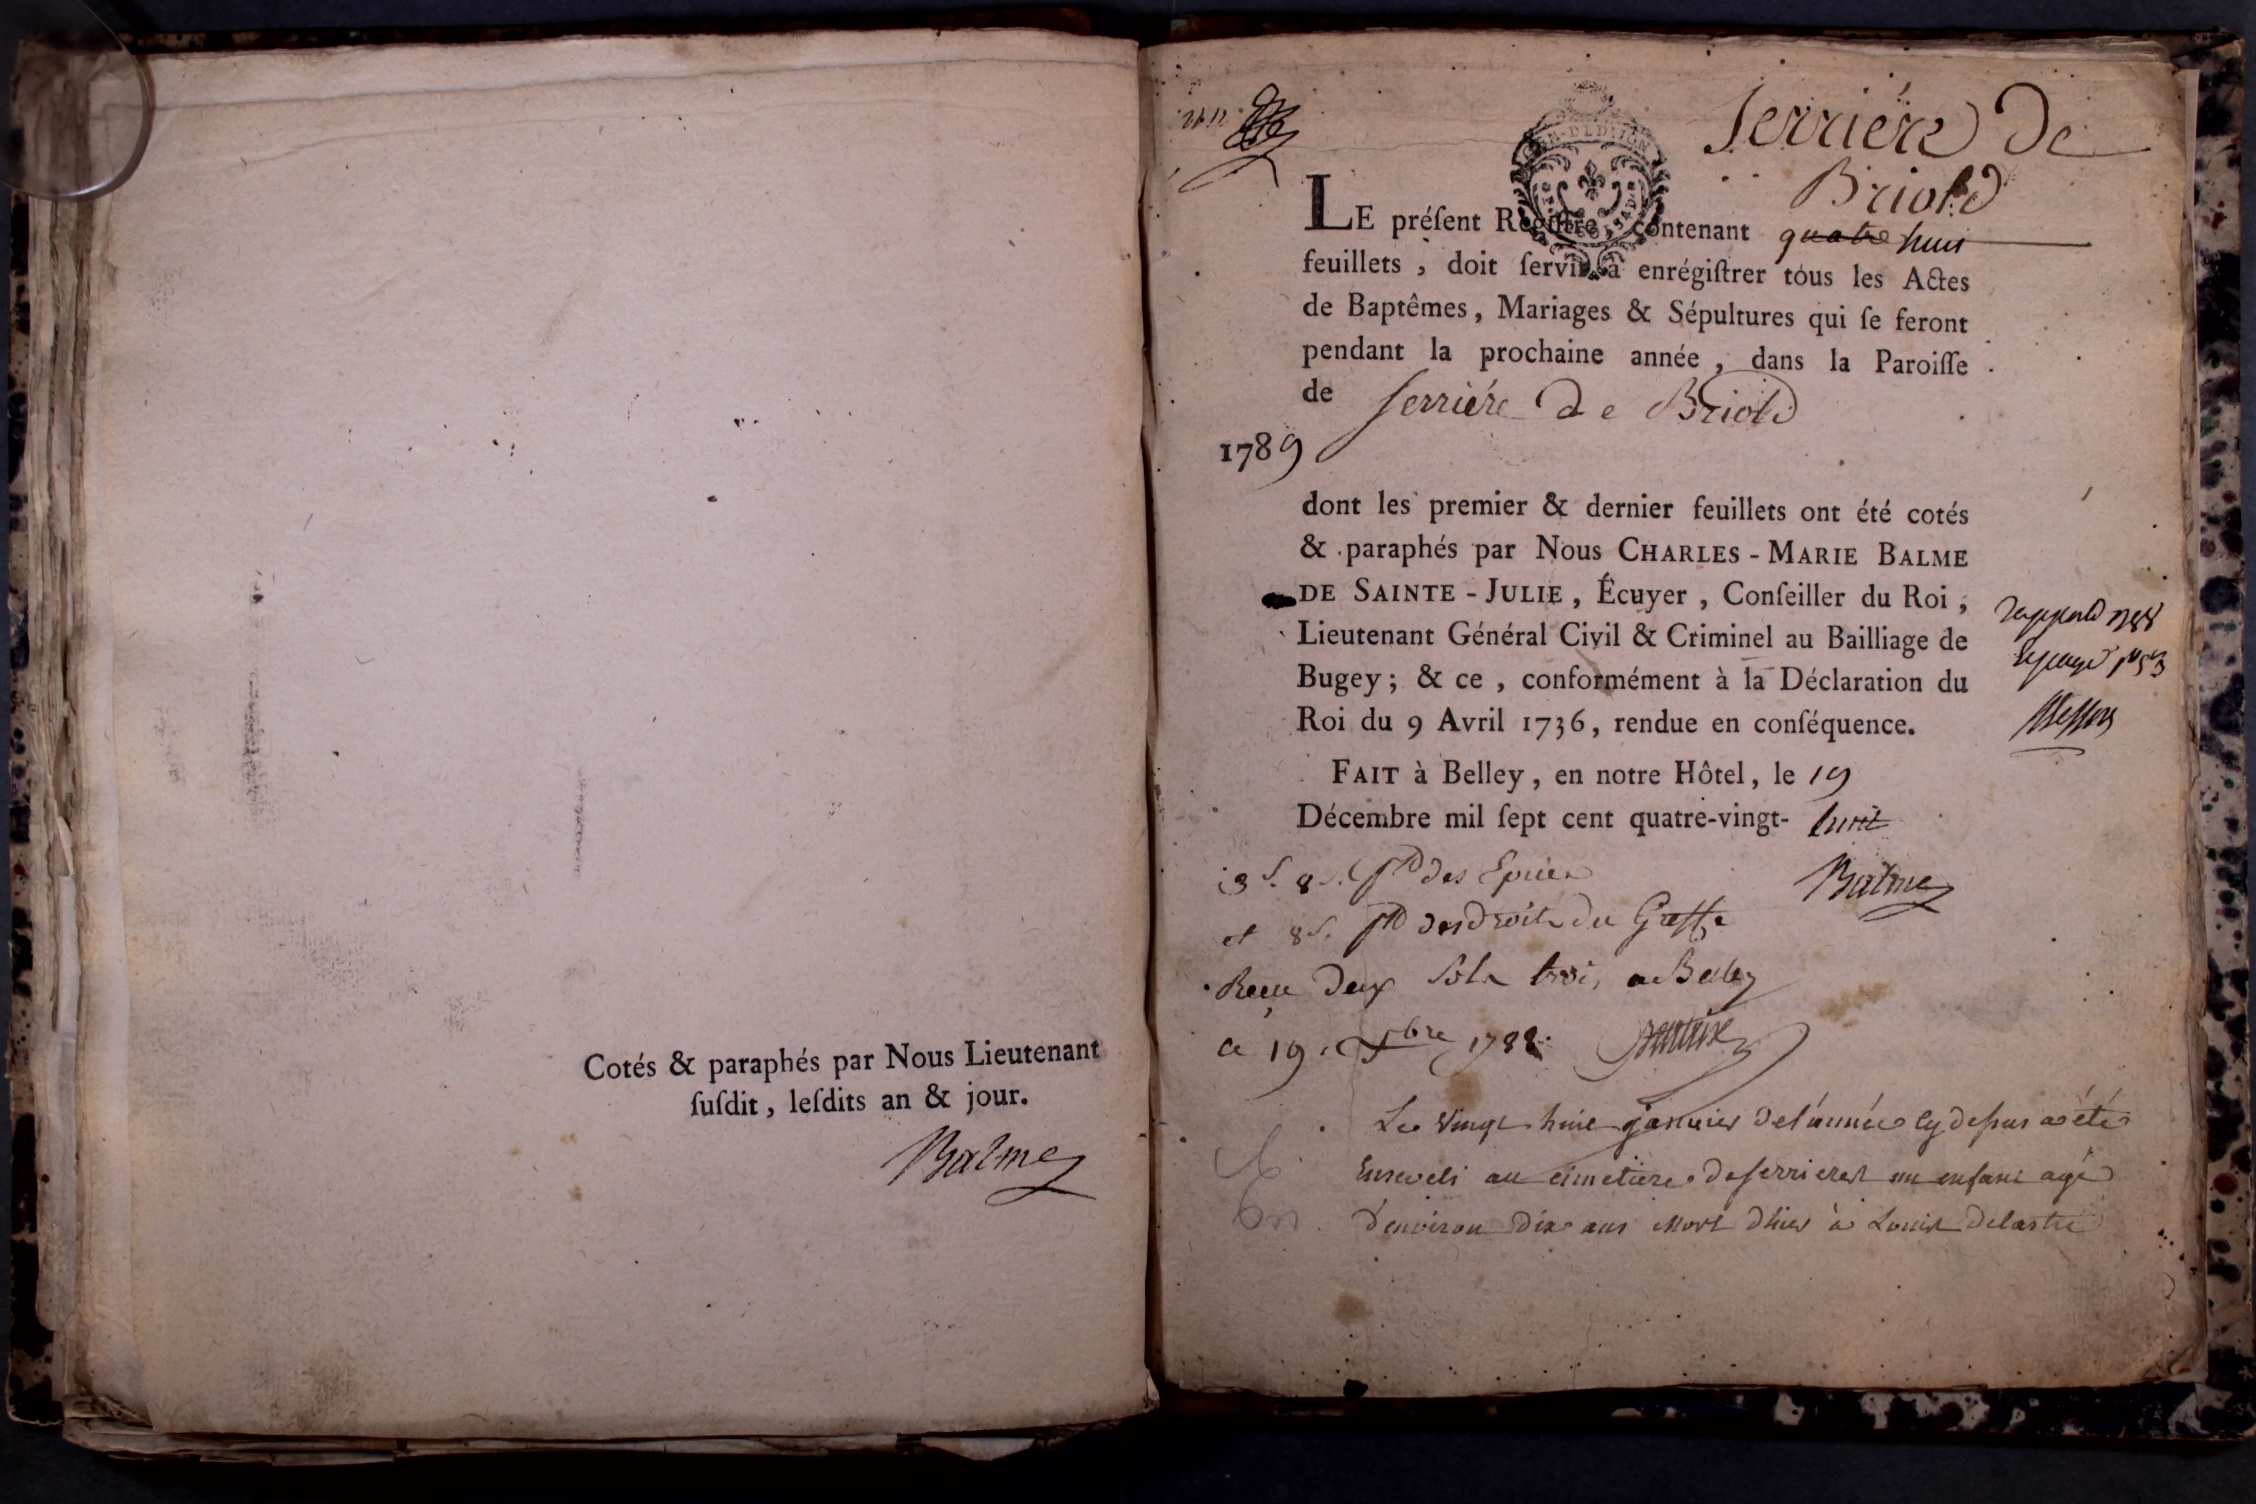 Cotés & paraphés par Nous Lieutenant
ſuſdit, leſdits an & jour.
Balme
Serriére de
Briord
LE préſent Regiſtre, contenant quatre huit
feuillets, doit ſervir à enrégiſtrer tous les Actes
de Baptêmes, Mariages & Sépultures qui ſe feront
pendant la prochaine année, dans la Paroiſſe
de Serriére de Briord
1789
dont les premier & dernier feuillets ont été cotés
& paraphés par Nous CHARLES-MARIE BALME
DE SAINTE-JULIE, Écuyer, Conſeiller du Roi,
Lieutenant Général Civil & Criminel au Bailliage de
Bugey; & ce, conformément à la Déclaration du
Roi du 9 Avril 1736, rendue en conſéquence.
FAIT à Belley, en notre Hôtel, le 19
Décembre mil ſept cent quatre-vingt-huit
Balme
des Epices
et 8 s. des droits du Greffe
Receu deux sols trois a Belley
ce 19 Xbre 1788.
Le vingt huit janvier de l'année cy dessus a été
Enseveli au cimetiere de serrieres un enfant agé
d'environ dix ans mort d'hier à Louis Delastre